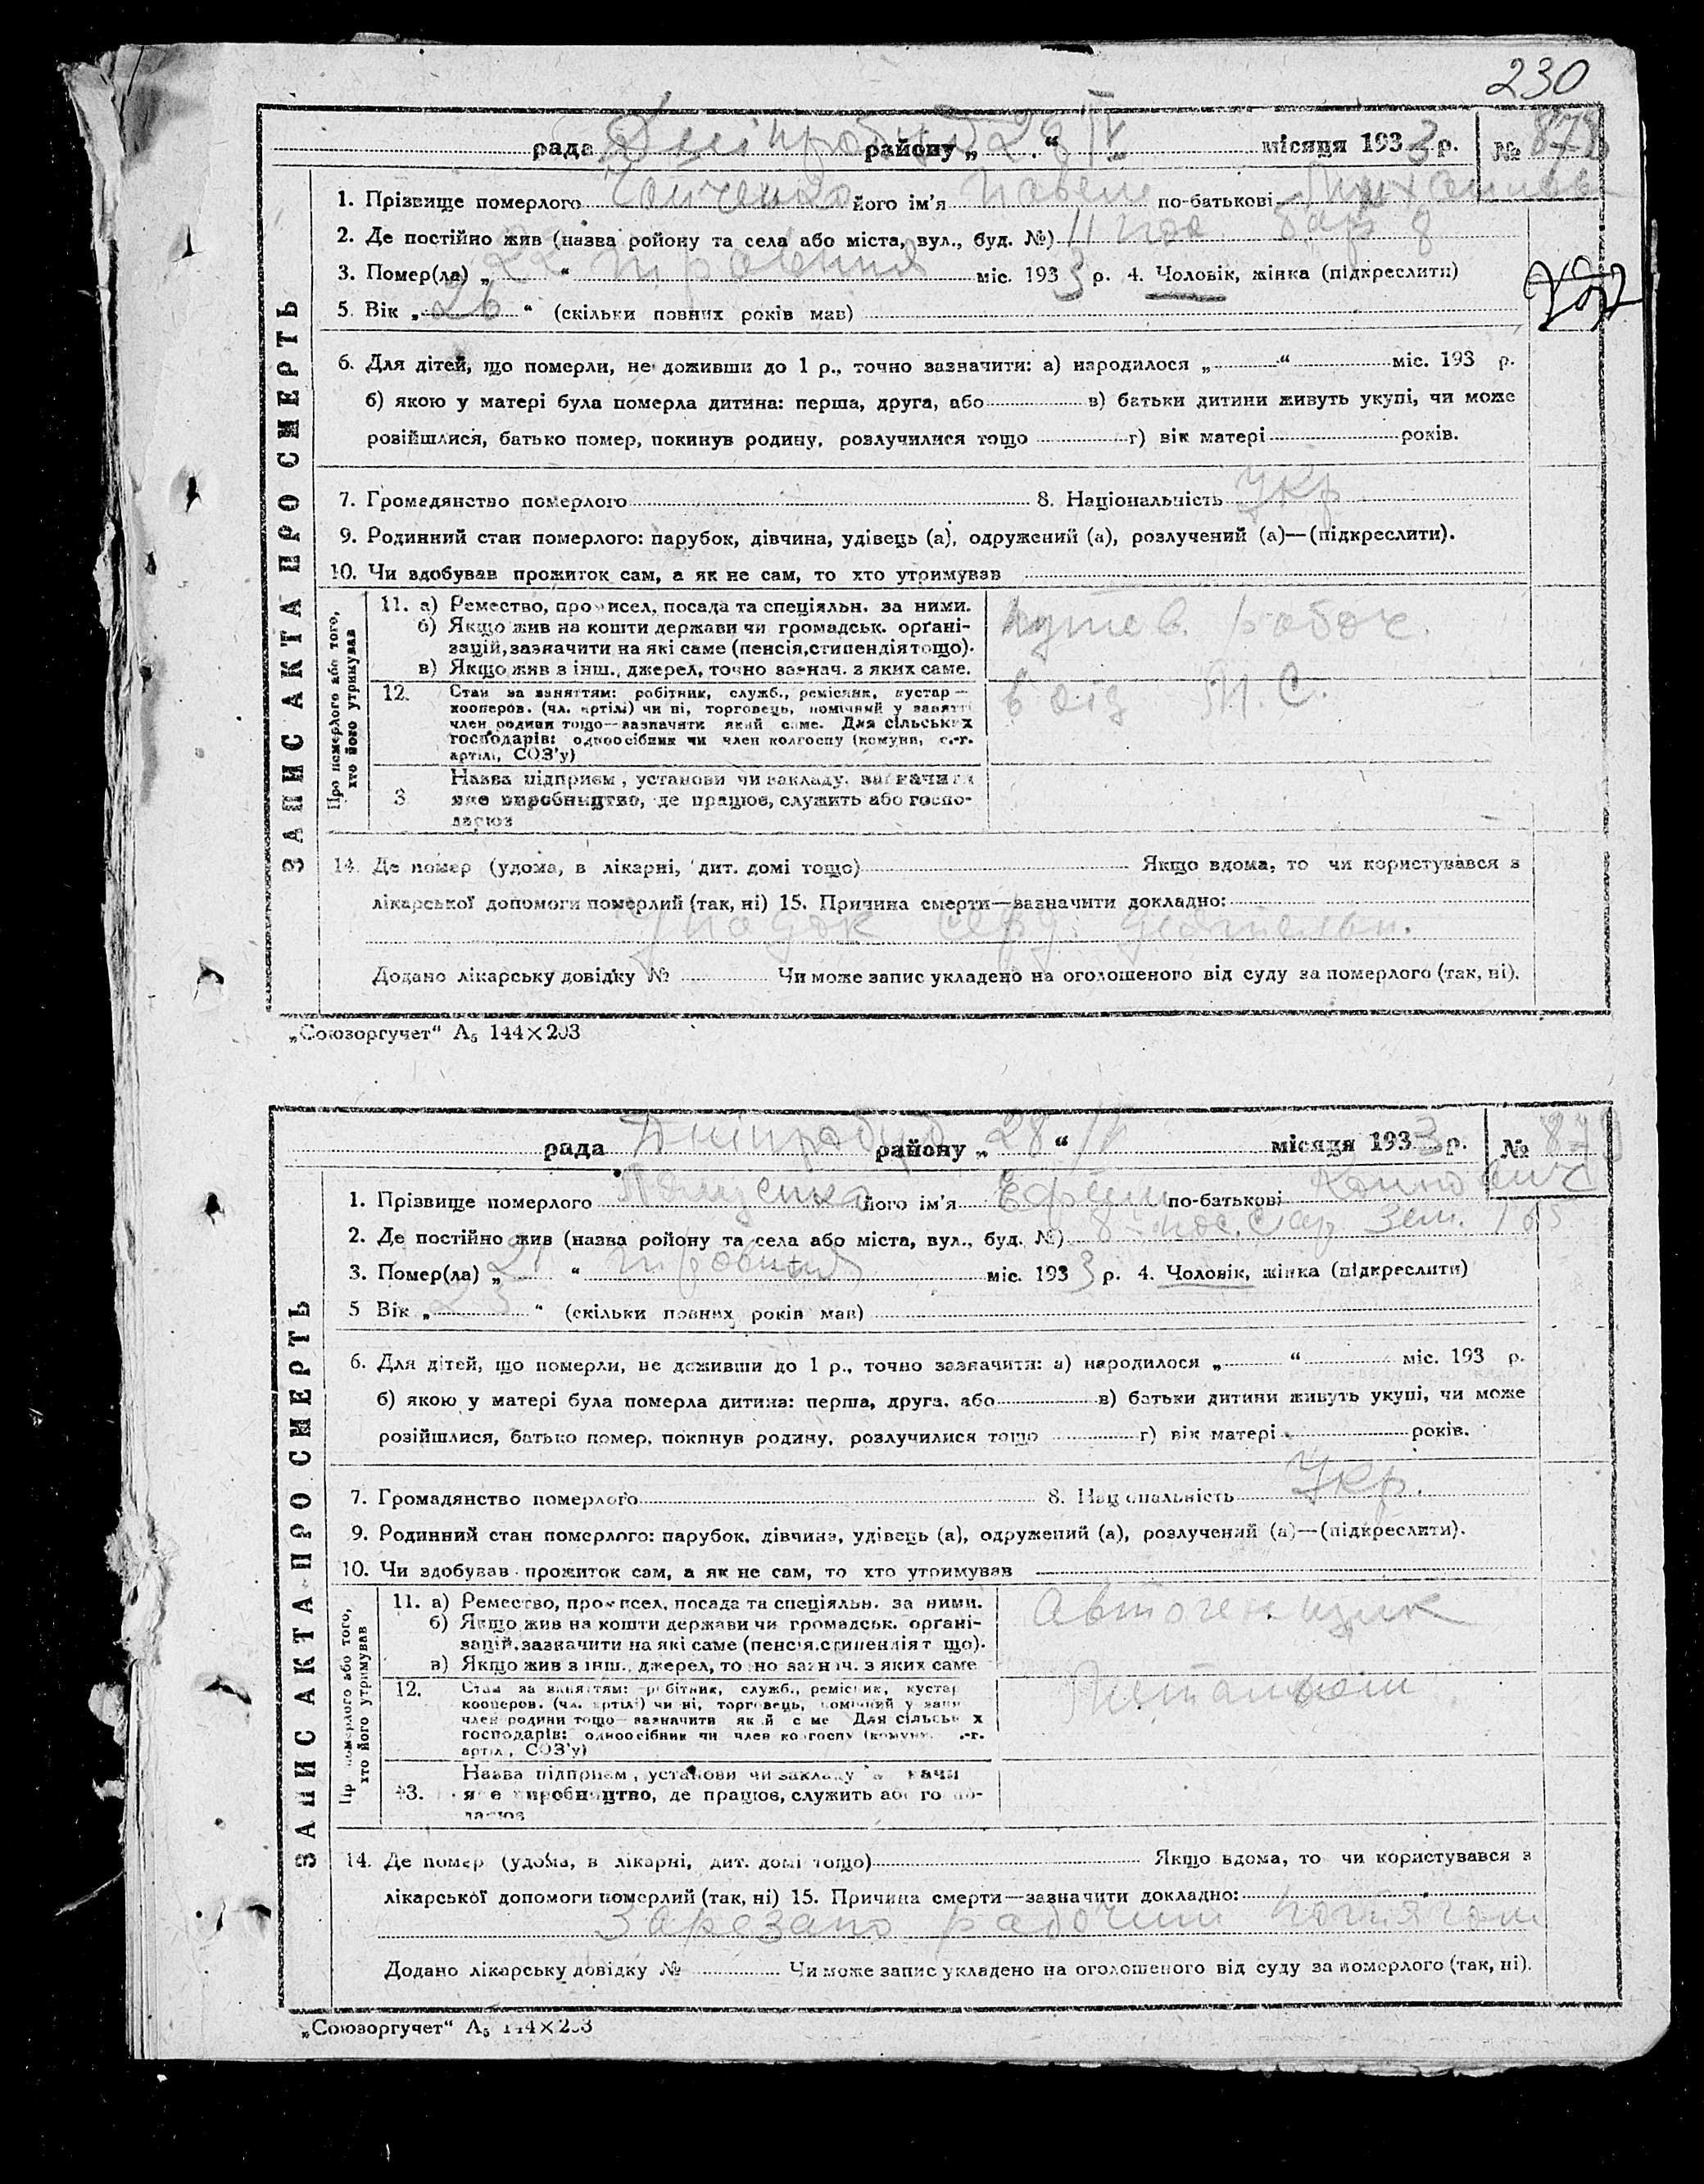 230
рада Дніпробуд району „ 28 “ IV місяця 1933 р. № 878
1. Прізвище померлого його ім'я Павел по-батькові
2. Де постійно жив (назва ройону та села або міста, вул., буд. №) 11 пос. бар 8
3. Помер(ла) „ 22 “ міс. 1933 р. 4. Чоловік, жінка (підкреслити)
5. Вік „ 26 “ (скільки повних років мав)
6. Для дітей, що померли, не доживши до 1 р., точно зазначити: а) народилося „ “ міс. 193 р.
б) якою у матері була померла дитина: перша, друга, або в) батьки дитини живуть укупі, чи може
розійшлися, батько помер, покинув родину, розлучилися тощо г) вік матері років.
7. Громадянство померлого 8. Національність Укр
9. Родинний стан померлого: парубок, дівчина, удівець (а), одружений (а), розлучений (а)—(підкреслити).
10. Чи здобував прожиток сам, а як не сам, то хто утримував
ЗАПИС АКТА ПРО СМЕРТЬ
Про померлого або того, хто його утримував
11. а) Ремество, промисел, посада та спеціяльн. за ними.
б) Якщо жив на кошти держави чи громадськ. органі-
зацій, зазначити на які саме (пенсія, стипендія тощо).
в) Якщо жив з інш., джерел, точно зазнач. з яких саме.
робоч.
12. Стан за заняттям: робітник, служб., ремісник, кустар—
кооперов. (чл. артілі) чи ні, торговець, помічний у занятті
член родини тощо—зазначити який саме. Для сільських
господарів: одноосібник чи член колгоспу (комуни, с.-г.
артілі, СОЗ'у)
3 Назва підприєм, установи чи закладу, зазначити
яке виробництво, де працює, служить або госпо-
дарює
14. Де помер (удома, в лікарні, дит. домі тощо) Якщо вдома, то чи користувався з
лікарської допомоги померлий (так, ні) 15. Причина смерти—зазначити докладно:
Упадок серд. деятельн.
Додано лікарську довідку № Чи може запис укладено на оголошеного від суду за померлого (так, ні).
„Союзоргучет“ А5 144×203
рада Дніпробуд району „ 28 “ IV місяця 1933 р. № 879
1. Прізвище померлого його ім'я по-батькові
2. Де постійно жив (назва ройону та села або міста, вул., буд. №) 8 пос.
3. Помер(ла) „ 21 “ міс. 1933 р. 4. Чоловік, жінка (підкреслити)
5 Вік „ 23 “ (скільки повних років мав)
6. Для дітей, що померли, не доживши до 1 р., точно зазначити: а) народилося „ “ міс. 193 р.
б) якою у матері була померла дитина: перша, друга, або в) батьки дитини живуть укупі, чи може
розійшлися, батько помер, покинув родину, розлучилися тощо г) вік матері років.
7. Громадянство померлого 8. Національність Укр.
9. Родинний стан померлого: парубок, дівчина, удівець (а), одружений (а), розлучений (а)—(підкреслити).
10. Чи здобував прожиток сам, а як не сам, то хто утримував
ЗАПИС АКТА ПРО СМЕРТЬ
Про померлого або того, хто його утримував
11. а) Ремество, промисел, посада та спеціяльн. за ними.
б) Якщо жив на кошти держави чи громадськ. органі-
зацій, зазначити на які саме (пенсія, стипендія тощо).
в) Якщо жив з інш., джерел, точно зазнач. з яких саме
Автогенщик
12. Стан за заняттям: робітник, служб., ремісник, кустар
кооперов. (чл. артілі) чи ні, торговець, помічний у занятті
член родини тощо—зазначити який саме Для сільських
господарів: одноосібник чи член колгоспу (комуни, с.-г.
артілі, СОЗ'у)
13. Назва підприєм, установи чи закладу зазначити
яке виробництво, де працює, служить або госпо-
дарює
14. Де помер (удома, в лікарні, дит. домі тощо) Якщо вдома, то чи користувався з
лікарської допомоги померлий (так, ні) 15. Причина смерти—зазначити докладно:
Зарезано рабочим потягом
Додано лікарську довідку № Чи може запис укладено на оголошеного від суду за померлого (так, ні).
„Союзоргучет“ А5 144×203